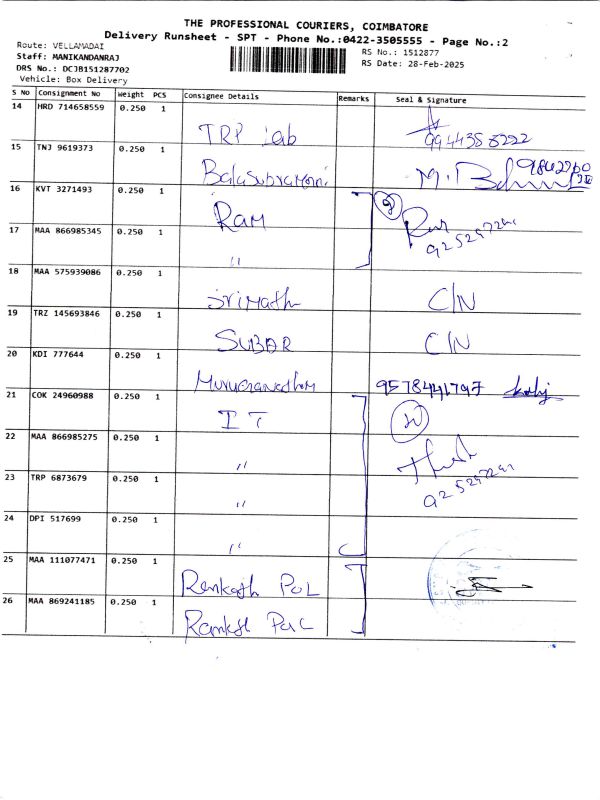 THE PROFESSIONAL COURIERS, COIMBATORE
Delivery Runsheet - SPT - Phone No.:0422-3505555 - Page No.:2
Route: VELLAMADAI
RS No.: 1512877
Staff: MANIKANDANRAJ
RS Date: 28-Feb-2025
DRS No.: DCJB151287702
Vehicle: Box Delivery
S No Consignment No Weight PCS Consignee Details Remarks Seal & Signature
14 HRD 714658559 0.250 1 TRP lab
15 TNJ 9619373 0.250 1
16 KVT 3271493 0.250 1 RAM
17 MAA 866985345 0.250 1 "
18 MAA 575939086 0.250 1 C/N
19 TRZ 145693846 0.250 1 C/N
20 KDI 777644 0.250 1 9578441797
21 COK 24960988 0.250 1 IT
22 MAA 866985275 0.250 1 "
23 TRP 6873679 0.250 1 "
24 DPI 517699 0.250 1 "
25 MAA 111077471 0.250 1
26 MAA 869241185 0.250 1